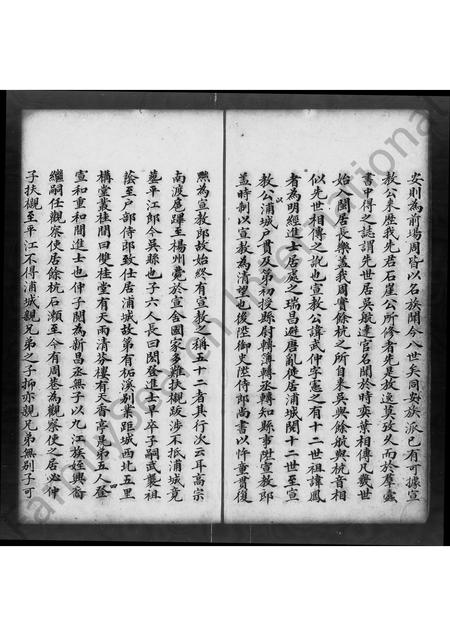 安則為前場周皆以名族聞今八世矣同安族派已有可據宣
教公來歷我先君石崖公所修者先是放逸莫攷久而於羣蠹
書中得之誌謂先世居吳航達官名聞於時奕葉相傳凡幾世
始入閩居長樂蓋我周實餘杭之所自來吳與餘航與杭音相
似先世相傳之訛也宣教公諱武仲字憲之有十二世祖諱鳳
者為明經進士居處之瑞昌避唐亂徙居浦城閱十二世至宣
教公浦城戶貫及第初授縣尉轉簿轉丞轉知縣事陞宣教郎
蓋時制以宣教為清望也後陞御史陞侍郎尚書以忤童貫復
黜為宣教郎故始終有宣教之稱五十二者其行次云耳高宗
南渡扈蹕至楊州薨於宣舍國家多難扶櫬跋涉不抵浦城竟
墓平江郎今吳縣也子六人長曰閎登進士早卒子嗣武襲祖
蔭至戶部侍郎致仕居浦城故第有柘溪別業距城西北五里
構堂叢桂間曰雙桂堂有天雨清芬樓有天香亭是弟五人登
宣和重和間進士也仲子閱為新昌丞無子以九江族姪興裔
繼嗣任觀察使居餘杭石瀨至今有周巷為觀察使之居必仲
子扶櫬至平江不得浦城親兄弟之子抑亦親兄弟無別子可
FamilySearch International